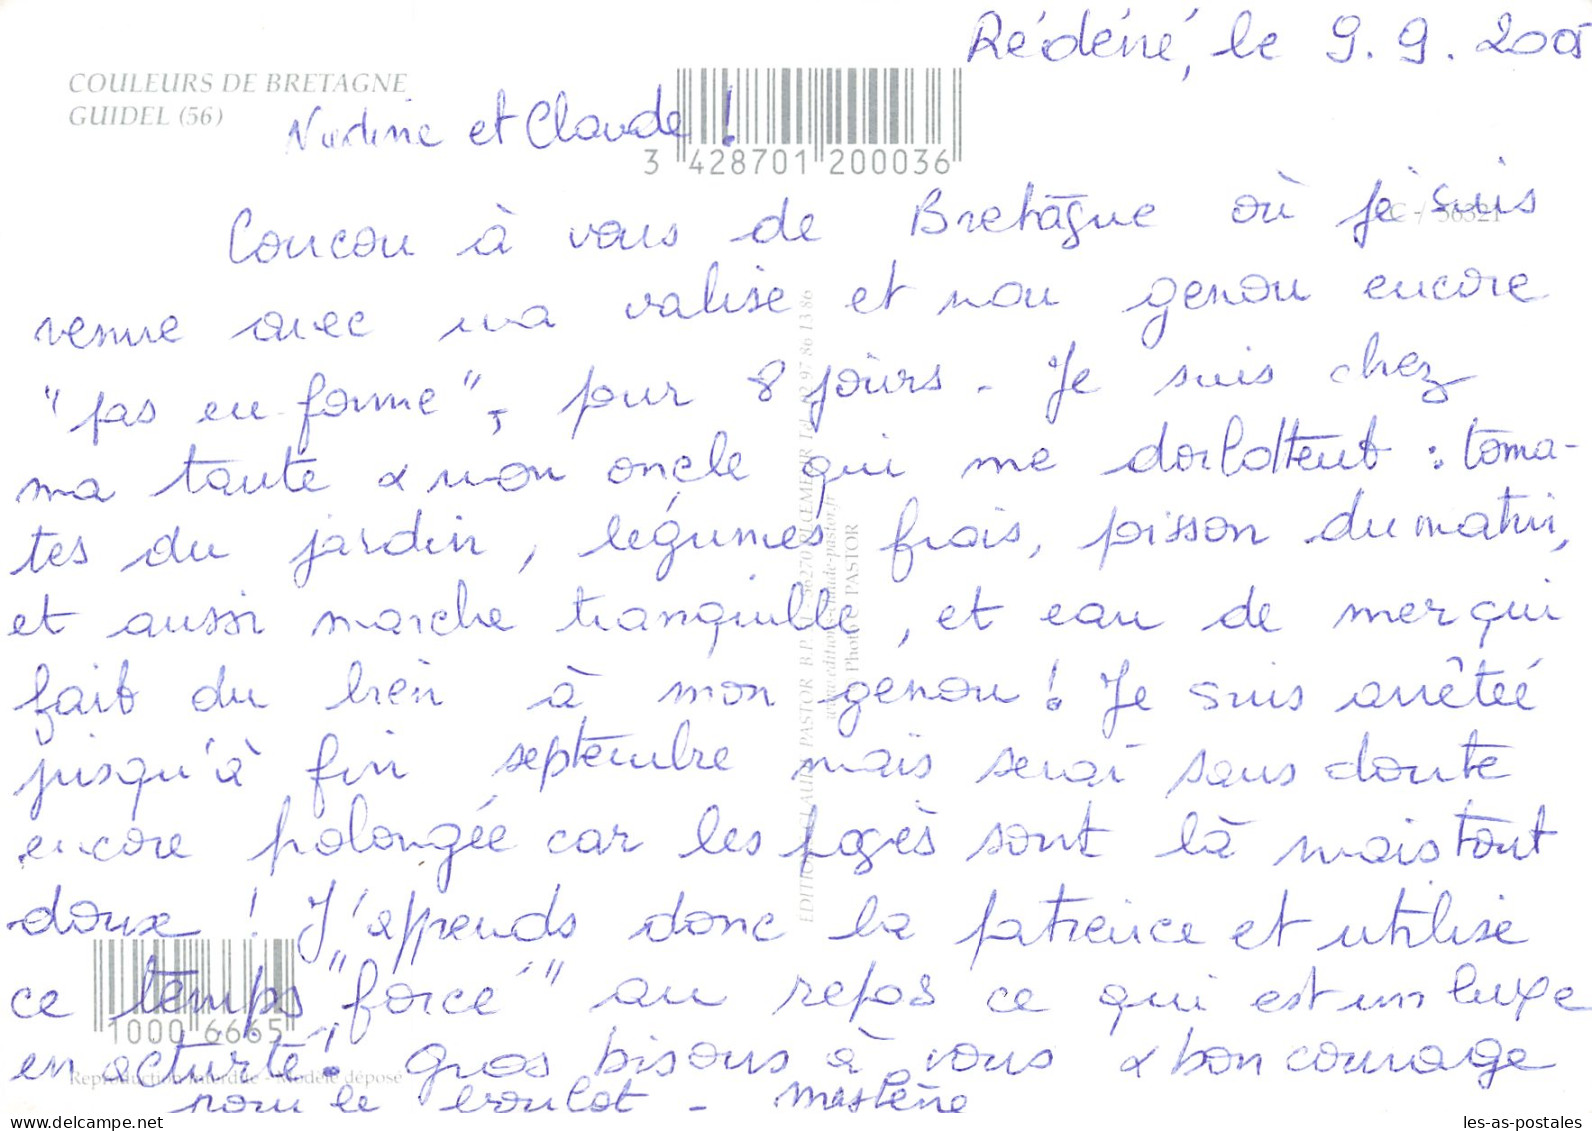 Rédéné, le 9.9.2005
COULEURS DE BRETAGNE
GUIDEL (56)
Nadine et Claude !
3 428701 200036
Coucou à vous de Bretagne où je suis
venue avec ma valise et mon genou encore
"pas en forme", pour 8 jours. Je suis chez
ma tante & mon oncle qui me dorlottent : toma-
tes du jardin, légumes frais, poisson du matin,
et aussi marche tranquille, et eau de mer qui
fait du bien à mon genou ! Je suis arrêtée
jusqu'à fin septembre mais serai sans doute
encore prolongée car les progrès sont là mais tout
doux ! J'apprends donc la patience et utilise
ce temps "forcé" au repos ce qui est un luxe
1000 6665
en activité ! Gros bisous à vous & bon courage
Reproduction interdite - Modèle déposé
pour le boulot -
PHOTO C. PASTOR
les-as-postales